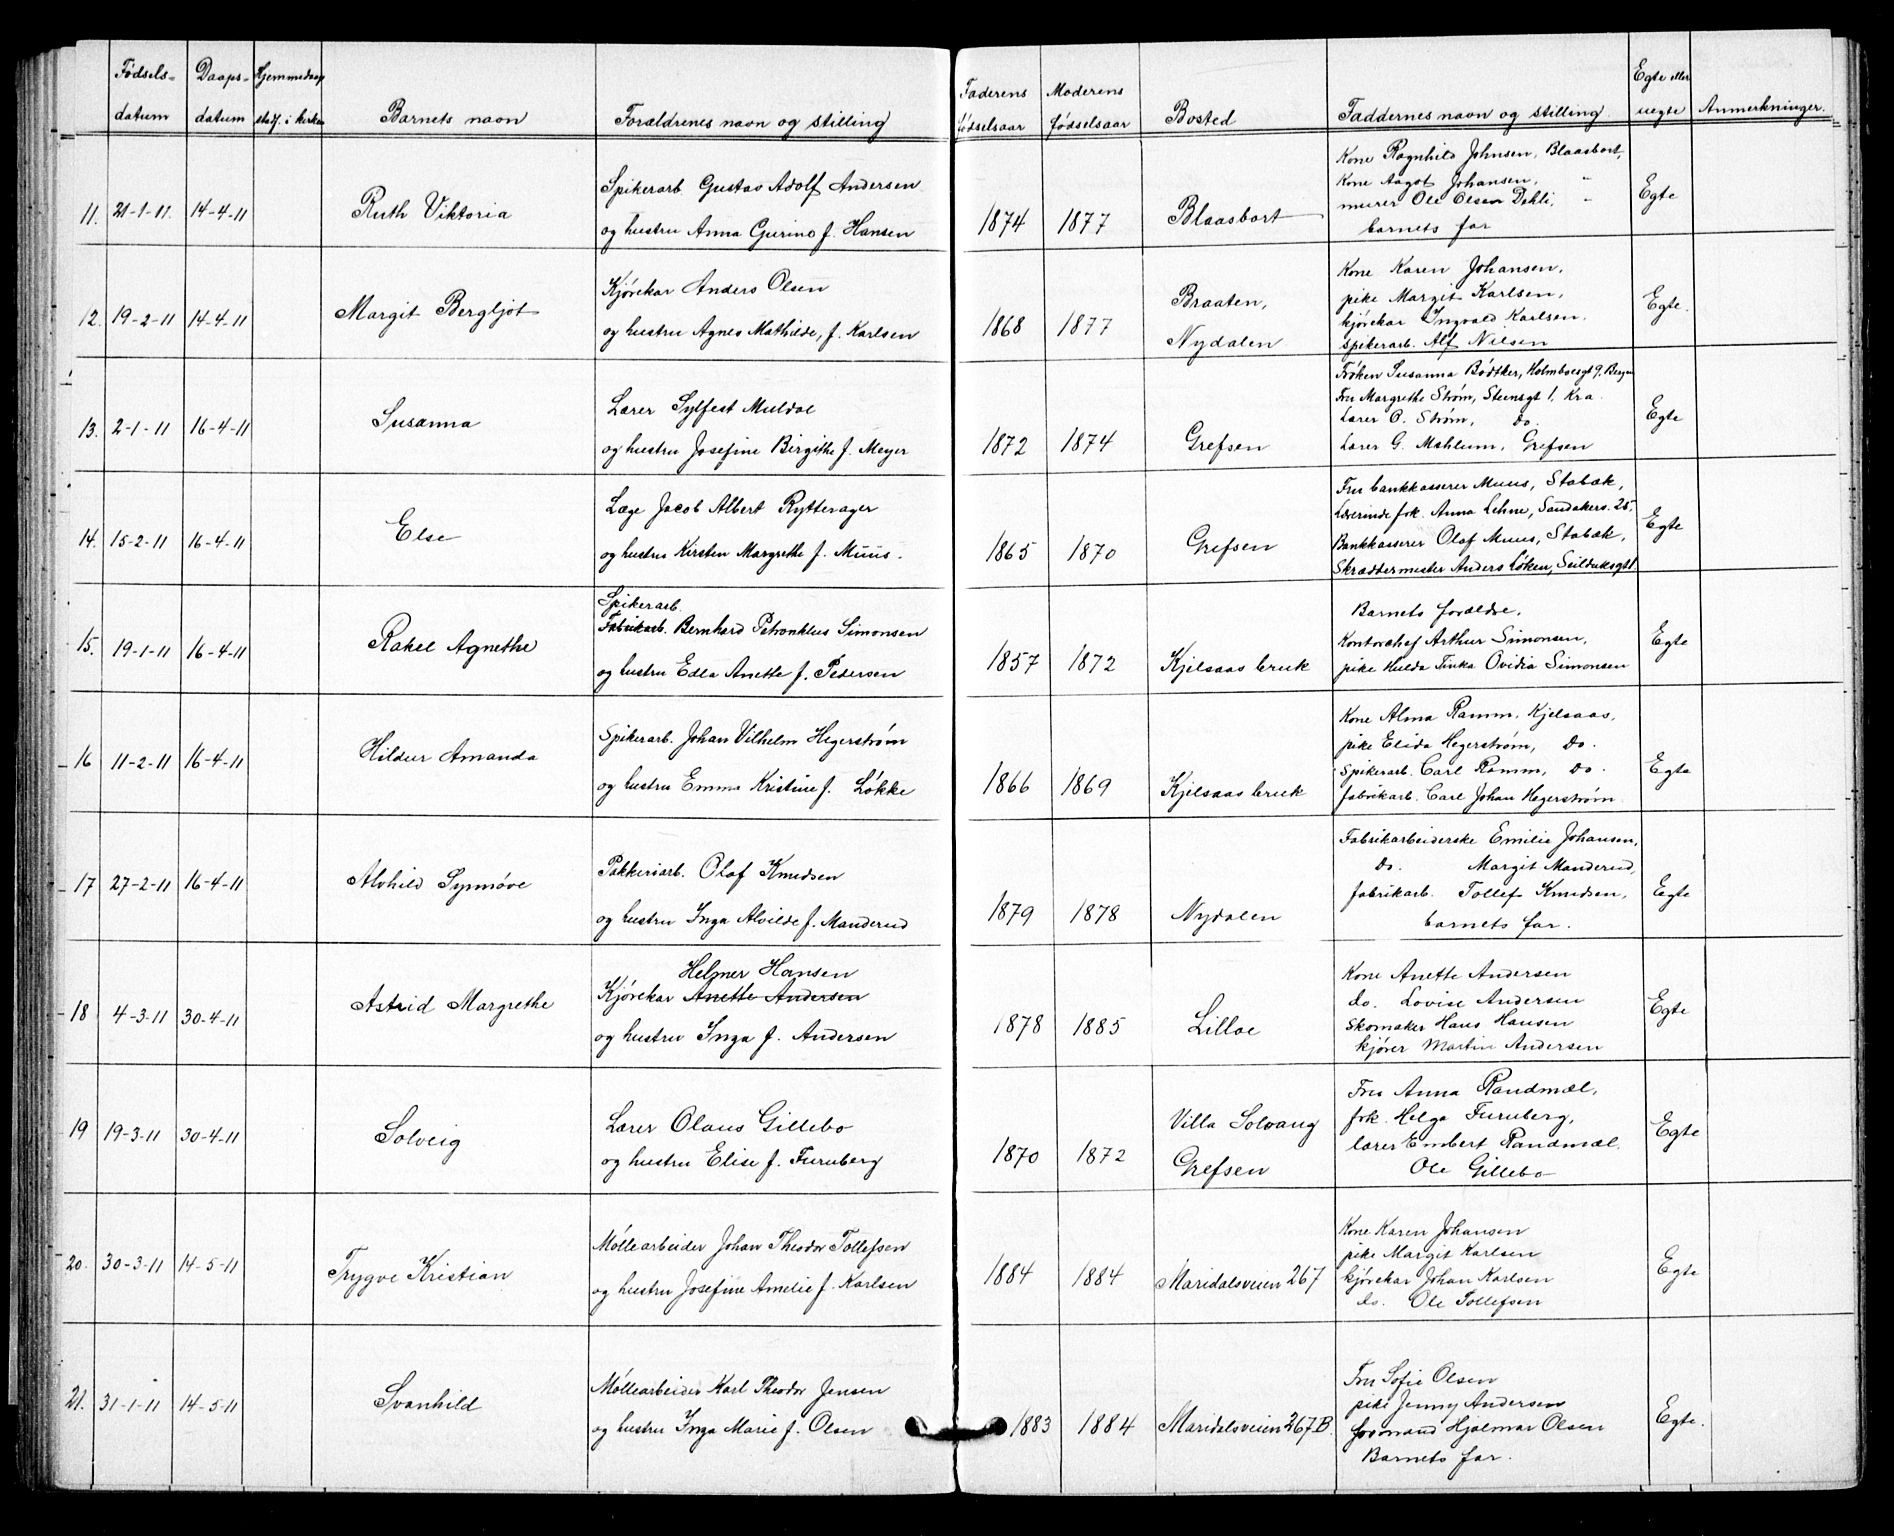 Fødsels- Daaps- Hjemmedaap Faderens Moderens Egte eller
datum datum stadf. i kirken Barnets navn Forældrenes navn og stilling fødselsaar fødselsaar Bosted Faddernes navn og stilling uegte Anmerkninger.
11. 21-1-11. 14-4-11 Ruth Viktoria
Spikerarb. Gustav Adolf Andersen
og hustru Anna Gurine f. Hansen
1874 1877 Blaasbort
Kone Ragnhild Johnsen, Blaasbort,
Kone Aagot Johansen, "
murer Ole Olsen Dehli, "
barnets far
Egte
12. 19-2-11 14-4-11 Margit Bergljot
Kjørekar Anders Olsen
og hustru Agnes Mathilde, f. Karlsen
1868 1877 Braaten,
Nydalen
Kone Karen Johansen,
pike Margit Karlsen,
kjørekar Ingvald Karlsen.
spikerarb. Alf Nilsen
Egte.
13. 2-1-11 16-4-11 Susanna
Lærer Sylfest Muldal
og hustru Josefine Birgithe f. Meyer
1872 1874 Grefsen
Frøken Susanna Bødtker, Holmboesgt 9, Bergen
Fru Margrethe Strøm, Steensgt 1. Kra.
Lærer O. Strøm, do.
Lærer G. Mæhlum, Grefsen
Egte
14. 15-2-11 16-4-11 Else
Læge Jacob Albert Rytterager
og hustru Kirsten Margrethe f. Muus.
1865 1870 Grefsen
Fru bankkasserer Muus, Stabæk,
Lærerinde frk. Anna Lehne, Sandakerv. 25,
Bankkasserer Olaf Muus, Stabæk,
Skræddermester Anders Løken, Seilduksgt 1
Egte
15. 19-1-11 16-4-11 Rakel Agnethe
Spikerarb.
Fabrikarb. Bernhard Petronklus Simonsen
og hustru Edla Anette f. Pedersen
1857 1872 Kjelsaas bruk
Barnets forældre,
Kontorchef Arthur Simonsen,
pike Hulda Tinka Ovidia Simonsen
Egte
16 11-2-11 16-4-11 Hildur Amanda
Spikerarb. Johan Vilhelm Hegerstrøm
og hustru Emma Kristine f. Løkke
1866 1869 Kjelsaas bruk
Kone Alma Ramm, Kjelsaas,
pike Elida Hegerstrøm, do.
Spikerarb. Carl Ramm, do.
fabrikarb. Carl Johan Hegerstrøm
Egte
17 27-2-11 16-4-11 Alvhild Synnøve
Pakkeriarb. Olaf Knudsen
og hustru Inga Alvilde f. Manderud
1879 1878 Nydalen
Fabrikarbeiderske Emilie Johansen,
do. Margit Manderud,
fabrikarb. Tollef Knudsen,
barnets far.
Egte
18 4-3-11 30-4-11 Astrid Margrethe
Helmer Hansen
Kjørekar Anette Andersen
og hustru Inga f. Andersen
1878 1885 Lilloe
Kone Anette Andersen
do. Lovise Andersen
Skomaker Hans Hansen
kjører Martin Andersen
Egte
19 19-3-11 30-4-11 Solveig
Lærer Olaus Gillebo
og hustru Elise f. Furuberg
1870 1872 Villa Solvang
Grefsen
Fru Anna Randmæl,
frk. Helga Furuberg,
lærer Embert Randmæl.
Ole Gillebo
Egte
20. 30-3-11 14-5-11 Trygve Kristian
Møllearbeider Johan Theodor Tollefsen
og hustru Josefine Amelie f. Karlsen
1884 1884 Maridalsveien 267
Kone Karen Johansen
pike Margit Karlsen
kjørekar Johan Karlsen
do. Ole Tollefsen
Egte
21. 31-1-11 14-5-11 Svanhild
Møllearbeider Karl Theodor Jensen
og hustru Inga Marie f. Olsen
1883 1884 Maridalsveien 267B.
Fru Sofie Olsen
pike Jenny Andersen
formand Hjalmar Olsen
Barnets far.
Egte.